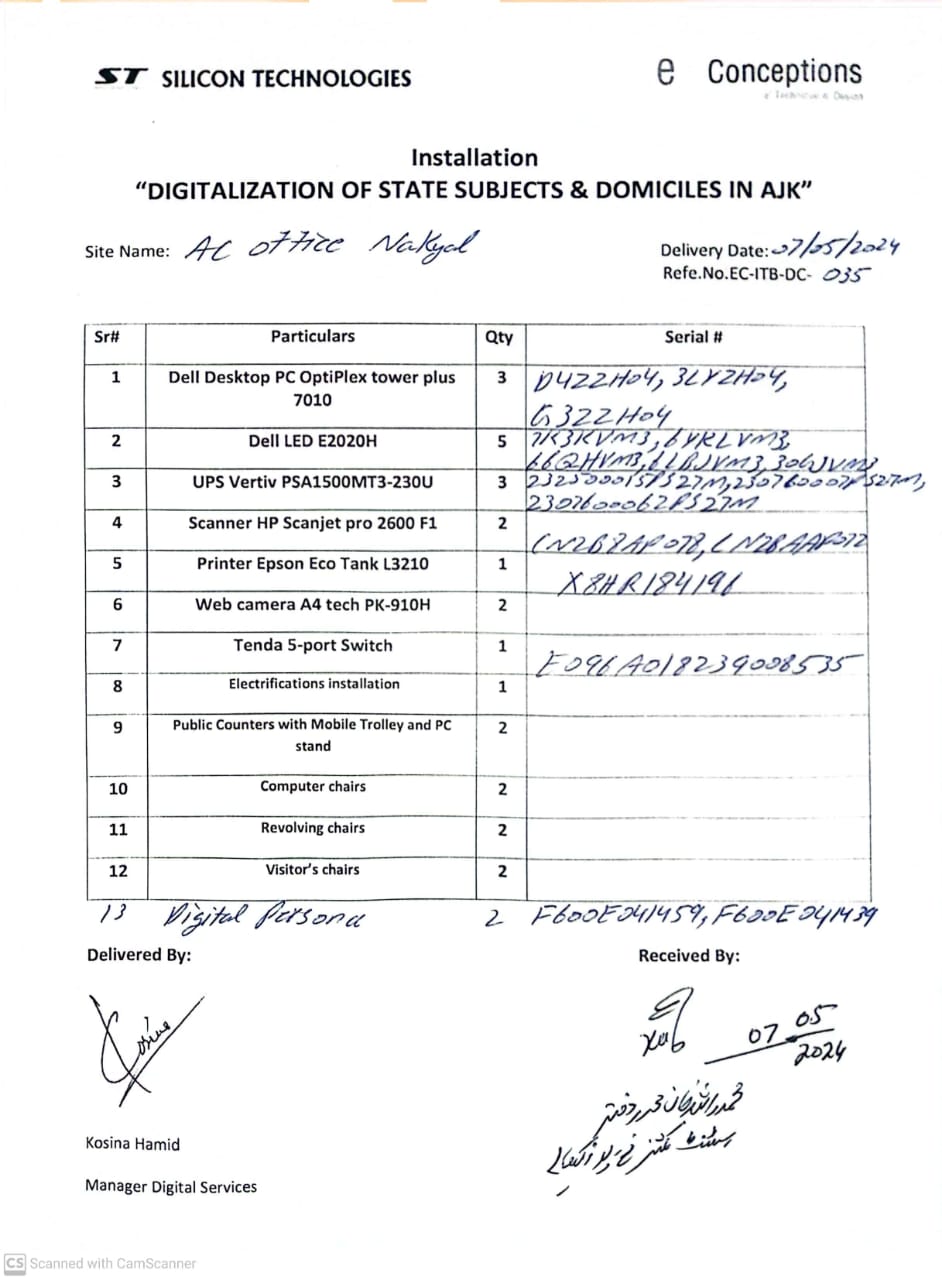 ST SILICON TECHNOLOGIES
e Conceptions
Installation
“DIGITALIZATION OF STATE SUBJECTS & DOMICILES IN AJK”
Site Name: AC office Nakyal
Delivery Date: 07/05/2024
Refe.No.EC-ITB-DC- 035
Sr# Particulars Qty Serial #
1 Dell Desktop PC OptiPlex tower plus 3 D4ZZH04, 3LYZH04,
7010 G322H04
2 Dell LED E2020H 5 7K3KVM3, 6YRLVM3,
66QHVM3,
3 UPS Vertiv PSA1500MT3-230U 3
2307600062PS27M
4 Scanner HP Scanjet pro 2600 F1 2
5 Printer Epson Eco Tank L3210 1 X8HR184196
6 Web camera A4 tech PK-910H 2
7 Tenda 5-port Switch 1 E096A018239008535
8 Electrifications installation 1
9 Public Counters with Mobile Trolley and PC 2
stand
10 Computer chairs 2
11 Revolving chairs 2
12 Visitor's chairs 2
13 Digital Persona 2 F600E041459, F600E041439
Delivered By:
Received By:
Kosina
07 05
2024
Kosina Hamid
Manager Digital Services
CS Scanned with CamScanner